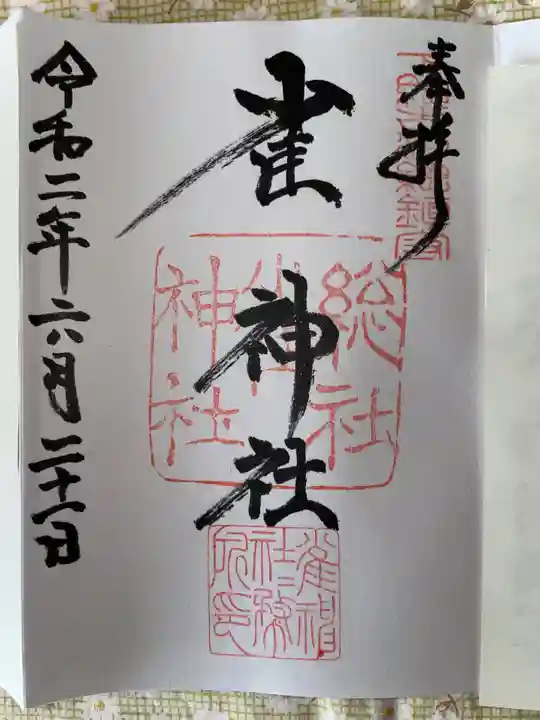 奉拝
雀神社
総社
雀
神社
雀神
社社務
所印
令和二年六月二十一日